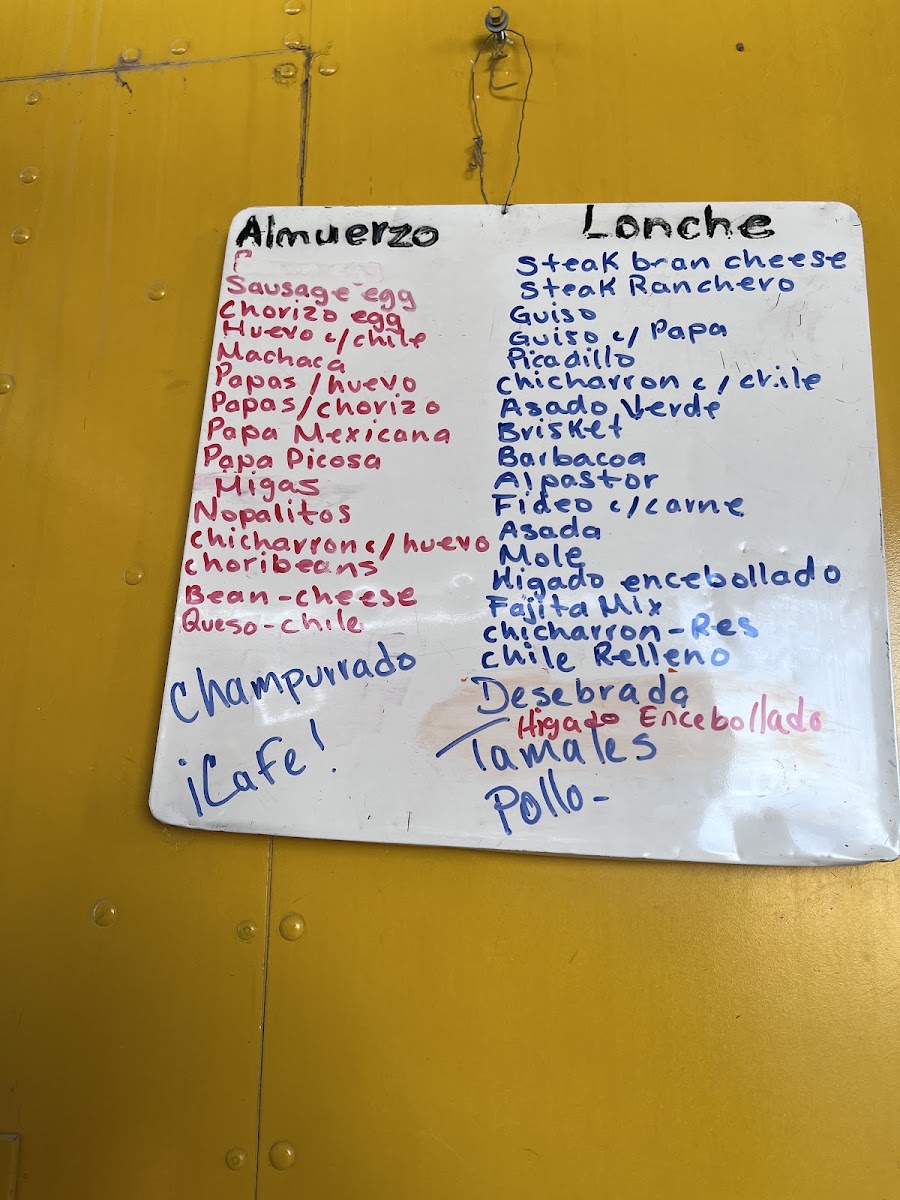 Almuerzo
Sausage-egg
Chorizo egg
Huevo c/chile
Machaca
Papas/huevo
Papas/chorizo
Papa Mexicana
Papa Picosa
Migas
Nopalitos
chicharron c/huevo
choribeans
Bean-cheese
Queso-chile
Champurrado
¡Cafe!
Lonche
Steak bran cheese
Steak Ranchero
Guiso
Guiso c/Papa
Picadillo
chicharron c/chile
Asado Verde
Brisket
Barbacoa
Alpastor
Fideo c/carne
Asada
Mole
Higado encebollado
Fajita Mix
chicharron-Res
chile Relleno
Desebrada
Higado Encebollado
Tamales
Pollo-